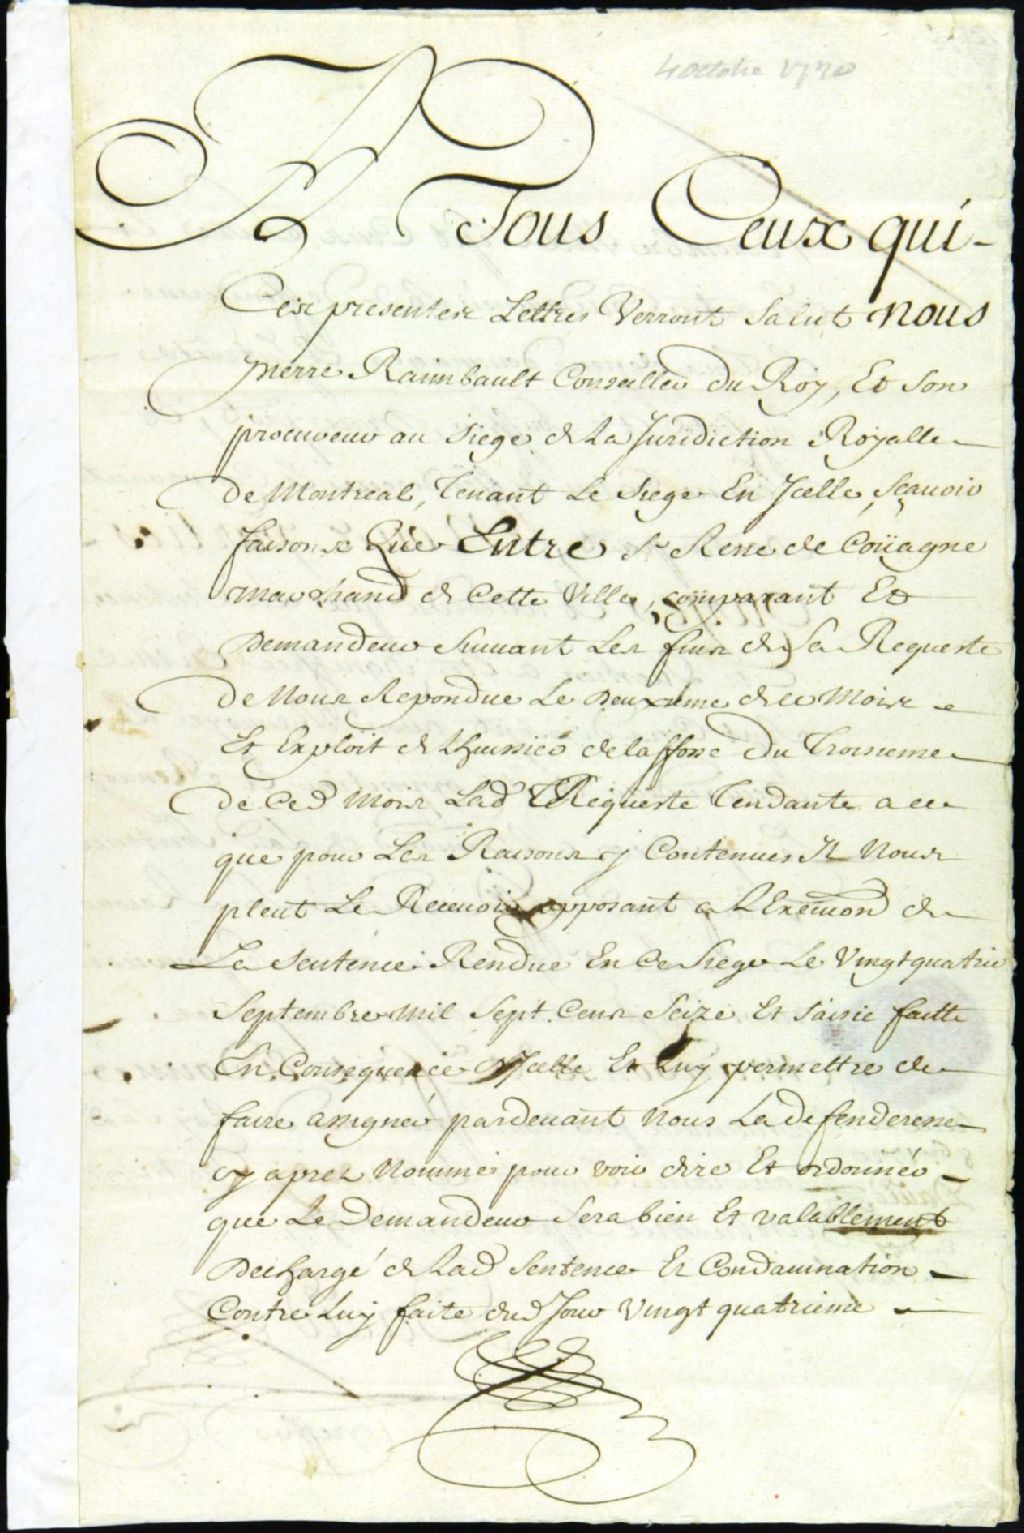 4 octobre 1720
A Tous Ceux qui
Ces presentes Lettres Verront Salut Nous
pierre Raimbault Conseiller du Roy, Et Son
procureur au siege de la Jurisdiction Royalle
de Montreal, tenant Le siege En Jcelle, sçauoir
faisons Que Entre Sr René de Coüagne
marchand de Cette Ville, comparant Et
Demandeur Suiuant Les fins de Sa Requeste
de Nous Repondue Le Deuxieme de ce Mois
Et Exploit de Lhuissier delafosse du Troisieme
de Ced Mois Lad Requeste Tendante a ce
que pour Les Raisons y Contenues Il Nous
pleut Le Receuoir opposant a de
La Sentence Rendue En Ce Siege Le Vingtquatrie
Septembre mil Sept Cens Seize Et Saisie faitte
En Consequence dJcelle Et Luy permettre de
faire assigner pardeuant Nous La defenderesse
cy apres Nommé pour voir dire Et ordonner
que Le Demandeur Sera bien Et valablement
Dechargé de Lad Sentence Et Condamnation
Contre Luy faite dud Jour Vingt quatrieme